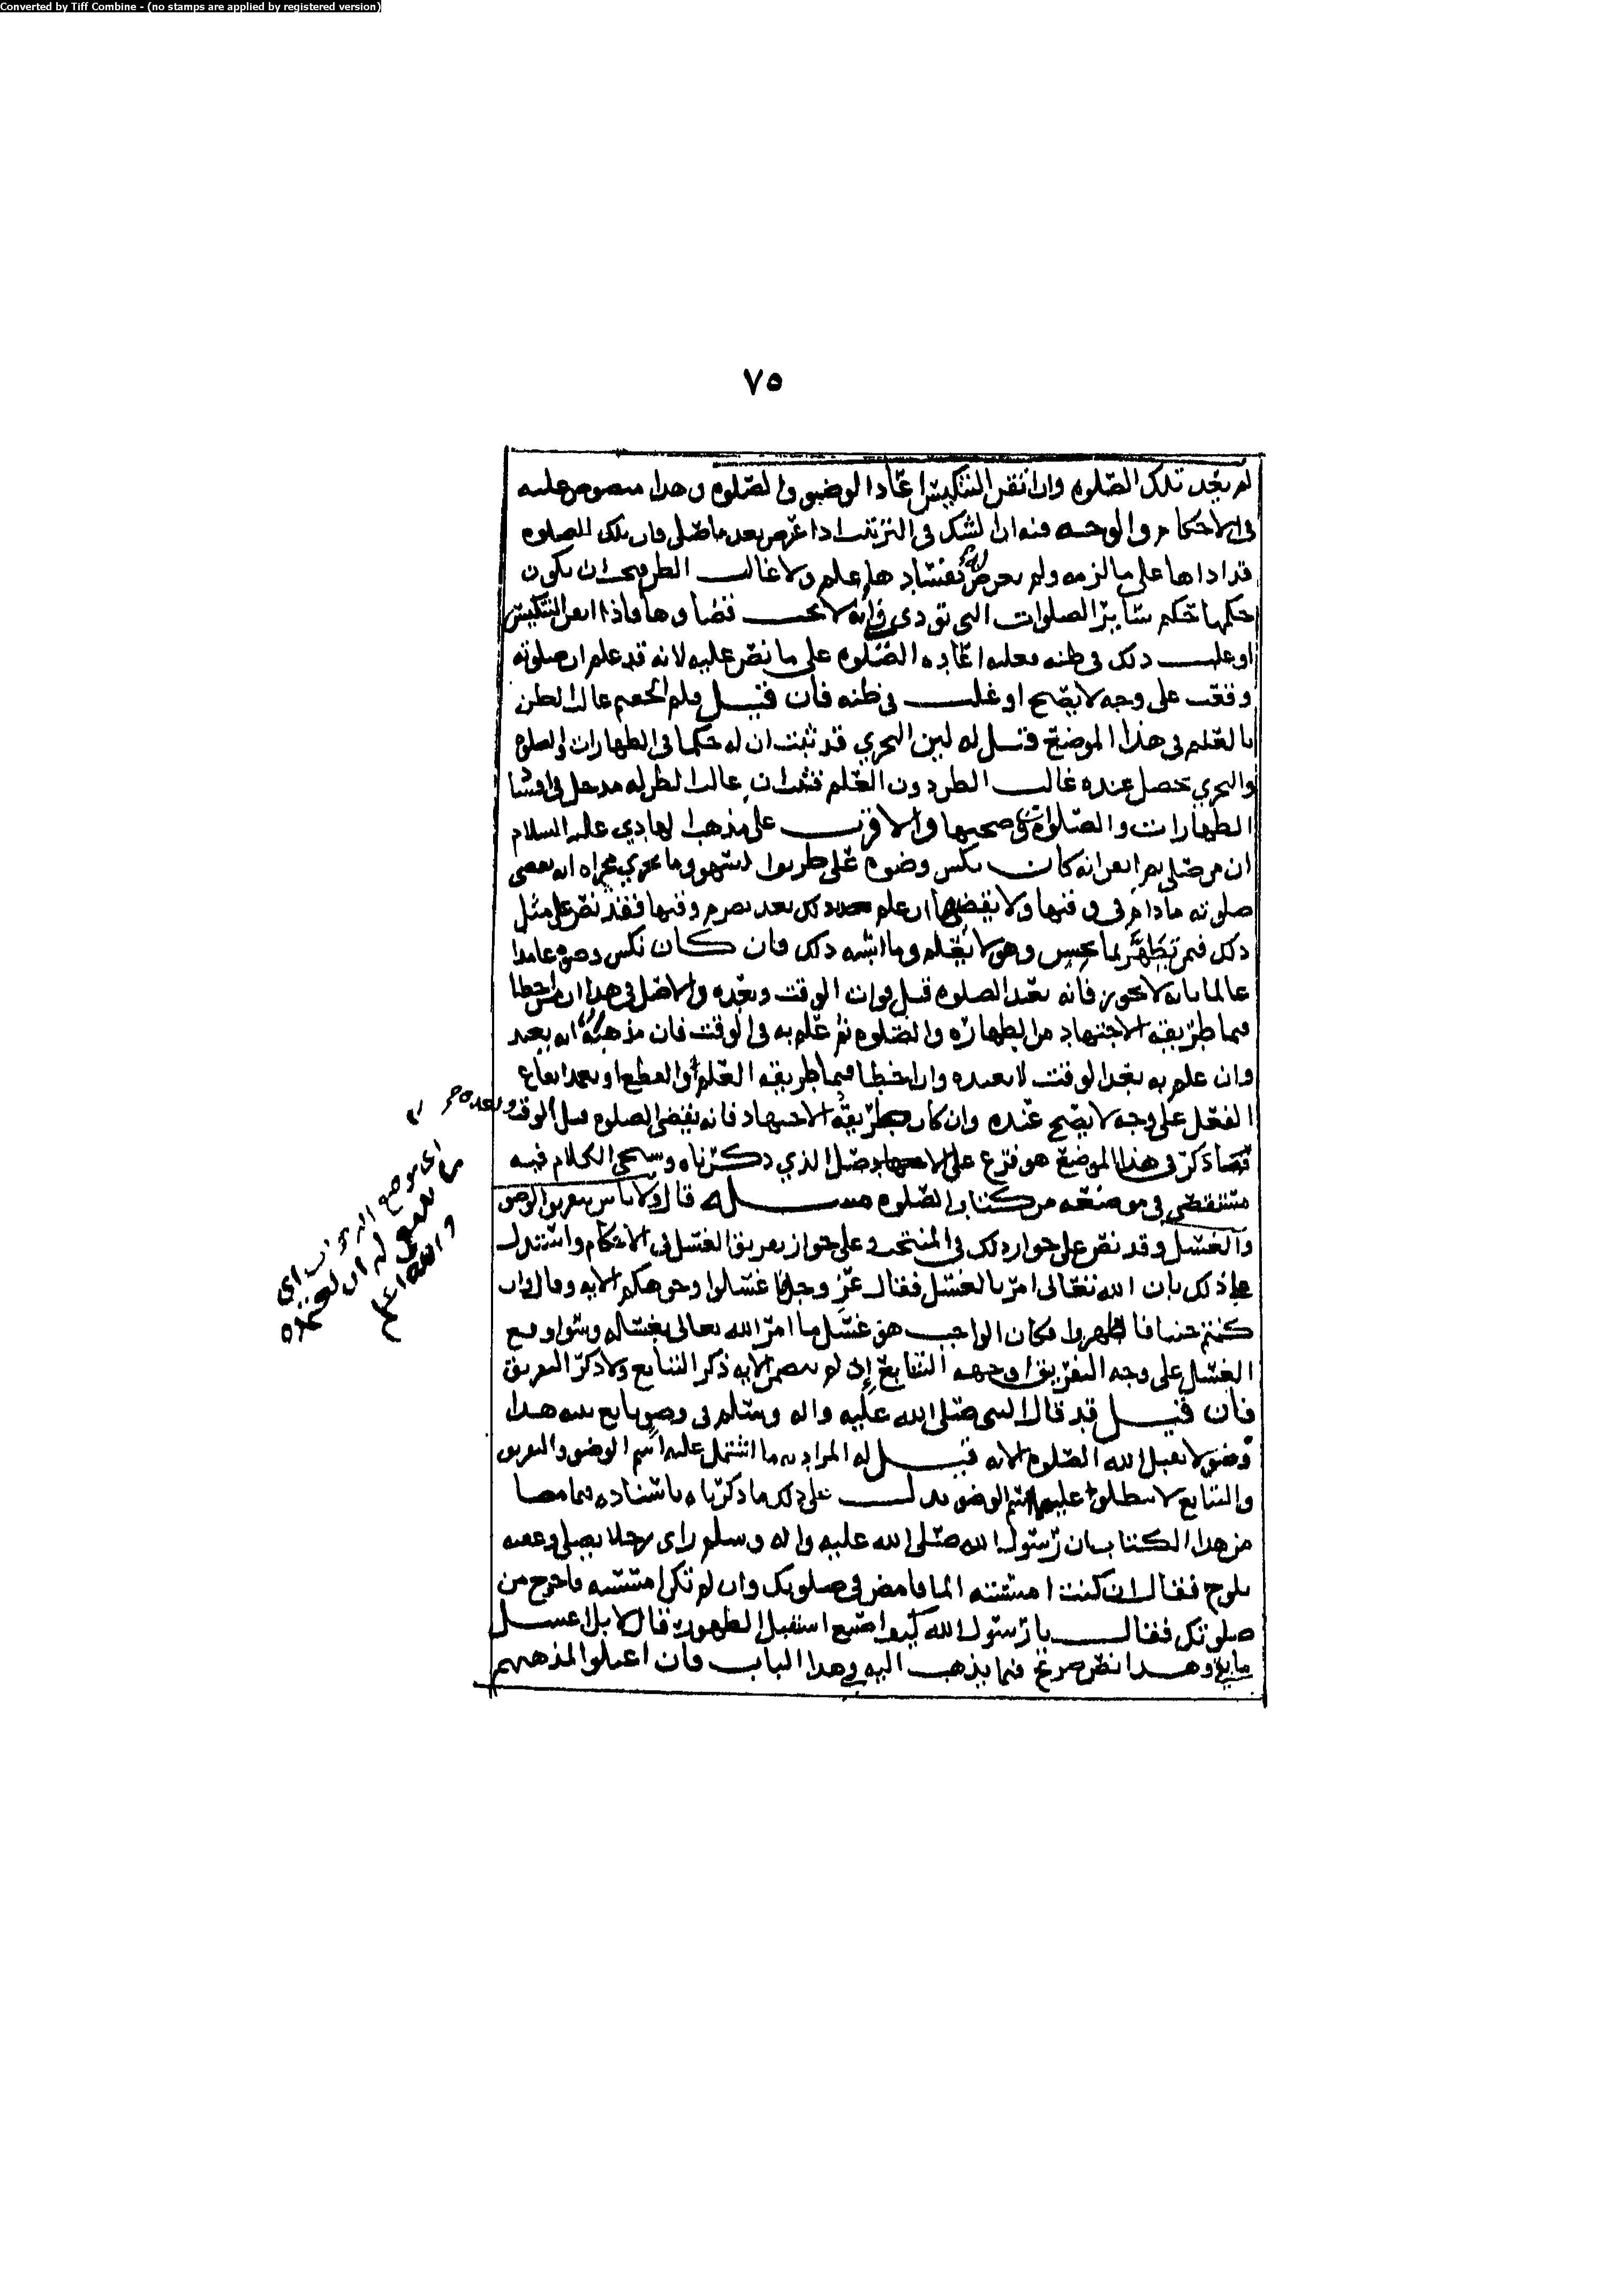 Converted by Tiff Combine - (no stamps are applied by registered version)
٧٥
لم يعد تلك الصلوه وان انقن التنكيس اعاد الوضوو والصلوه وهذا منصوص عليه
في الاحكام والوجه فيه ان الشك في الترتيب اذا عرض بعد ما صلى فان تلك الصلوه
قد اداها على ما لزمه ولم يعرض له بفسادها علم ولا غالب الظن فيجب ان يكون
حكمها حكم سائر الصلوات التي تودى في انه لا يجب قضاوها فاذا ايقن التنكيس
او غلب ذلك في ظنه فعليه اعاده الصلوه على ما نص عليه لانه قد علم ان صلوته
وقعت على وجه لا يصح او غلب في ظنه فان قيل ولم الحقتم غالب الظن
بالعلم في هذا الموضع قيل له ليس التحري قد ثبت ان له حكما في الطهارات والصلوه
والتحري يحصل عنده غالب الظن دون العلم فثبت ان غالب الظن له مدخل في افساد
الطهارات والصلوات وفي صحتها والاقرب على مذهب الهادي عليه السلام
ان من صلى ثم ايقن انه كان نكس وضوه على طريق السهو وما يجري مجراه انه يقضي
صلوته ما دام في وقتها ولا يقضيها ان علم ذلك بعد تصرم وقتها فقد نص على مثل
ذلك فيمن تطهر بما نجس وهو لا يعلم وما اشبه ذلك فان كان نكس وضوه عامدا
عالما بانه لا يجوز فانه يعيد الصلوه قبل فوات الوقت وبعده والاصل في هذا ان من اخطا
فيما طريقه الاجتهاد من الطهاره والصلوه ثم علم به في الوقت فان مذهبه انه يعيد
وان علم به بعد الوقت لا يعيده وان اخطا فيما طريقه العلم والقطع او تعمد ايقاع
الفعل على وجه لا يصح عنده وان كان طريقه الاجتهاد فانه يقضي الصلوه قبل الوقت وبعده
فما ذكر في هذا الموضع هو فرع على الاصل الذي ذكرناه وسيجي الكلام فيه
مستقصى في موضعه من كتاب الصلوه مسله قال ولا باس بتفريق الوضو
والغسل وقد نص على جواز ذلك في المنتخب وعلى جواز تفريق الغسل في الاحكام واستدل
على ذلك بان الله تعالى امر بالغسل فقال عز وجل فاغسلوا وجوهكم الايه وقال وان
كنتم جنبا فاطهروا فكان الواجب هو غسل ما امر الله تعالى بغسله وسوا وقع
الغسل على وجه التفريق او جهه التتابع اذ لم يتضمن الايه ذكر التتابع ولا ذكر التفريق
فان قيل قد قال النبي صلى الله عليه واله وسلم في وضو تابع بينه هذا
وضو لا يقبل الله الصلوه الا به قيل له المراد به ما اشتمل عليه اسم الوضو والتفريق
والتتابع لا ينطلق عليهما اسم الوضو يدل على ذلك ما ذكرناه باسناده فيما مضا
من هذا الكتاب ان رسول الله صلى الله عليه واله وسلم راى رجلا يصلي وعقبه
يلوح فقال ان كنت امسسته الما فامض في صلوتك وان لم تكن امسسته فاخرج من
صلوتك فقال يا رسول الله كيف اصنع استقبل الطهور قال لا بل اغسل
ما بقي وهذا نص صريح فيما يذهب اليه في هذا الباب فان اعتلوا لمذهبهم
والله اعلم